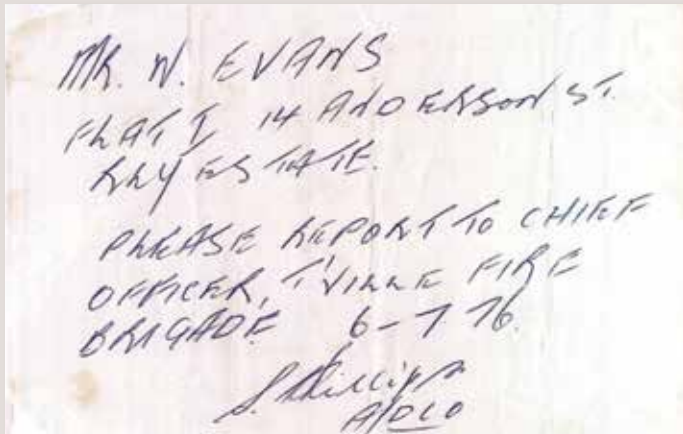 MR. W. EVANS
FLAT I 14 ANDERSON ST.
RLY ESTATE.
PLEASE REPORT TO CHIEF
OFFICER, T'VILLE FIRE
BRIGADE 6-7 76.
S. Phillips
A/DCO